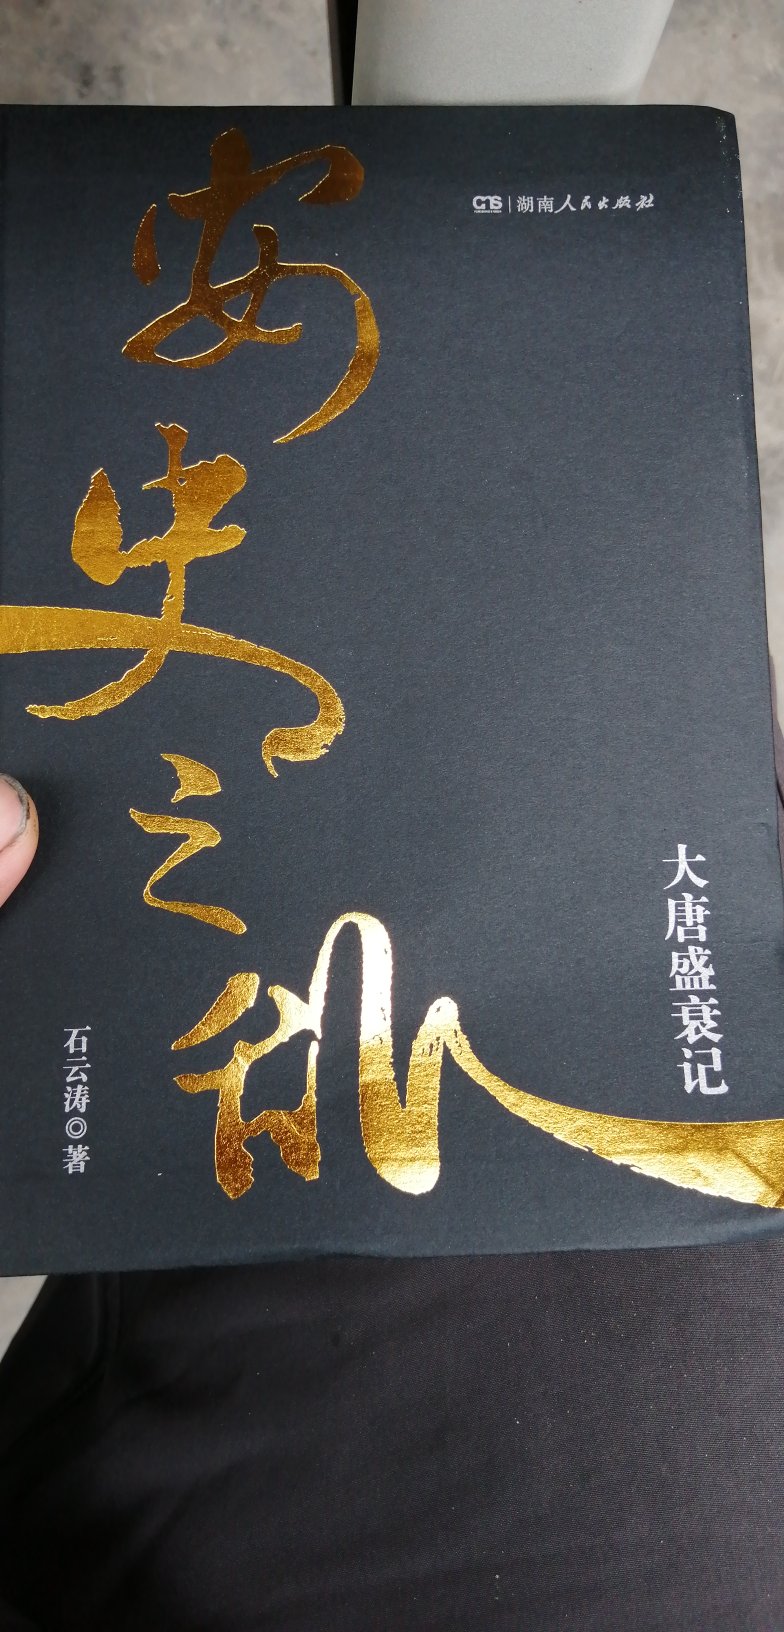 安史之乱
CTS 湖南人民出版社
大唐盛衰记
石云涛◎著